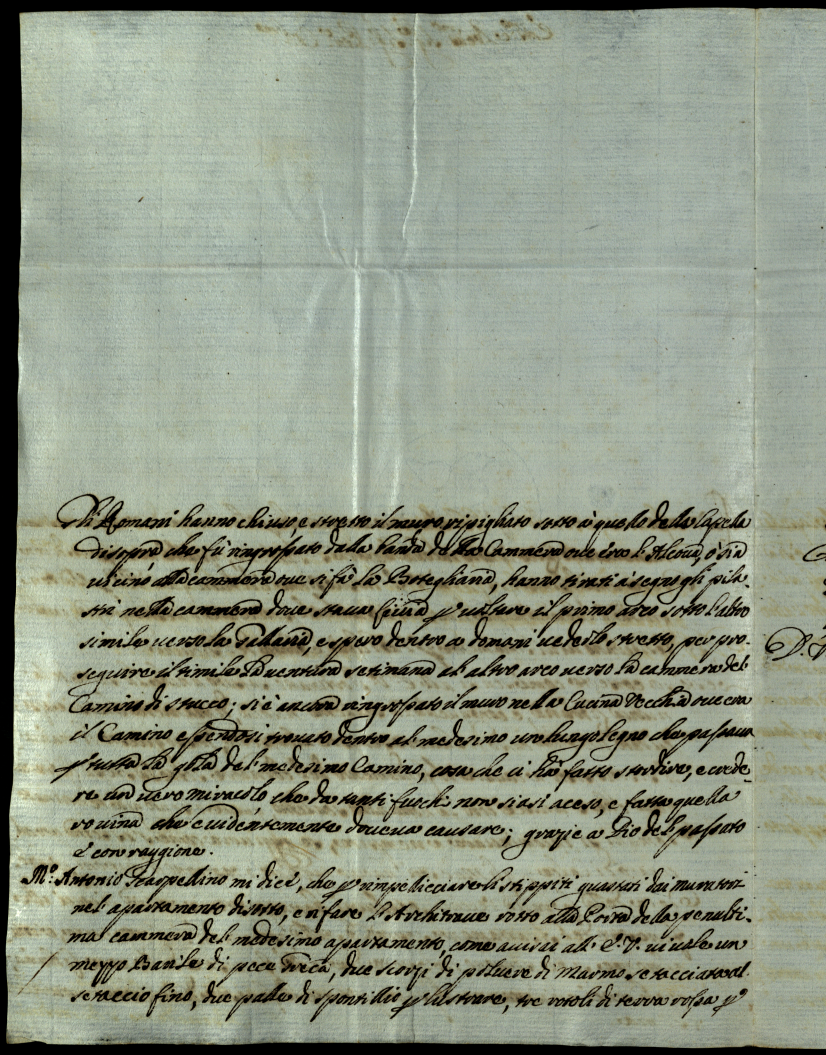 Li Romani hanno chiuso, e stretto il muro ripigliato sotto à quello della Capella
di sopra che fù ringrossato dalla banda della Cammera ove era l'Alcova, ò sia
vicino alla cammera ove si fà la Bottegliaria, hanno tirati à segno gli pila-
stri nella cammera dove stava p voltare il primo arco sotto l'altro
simile verso la Gallaria, e spero dentro a domani vederlo stretto, per pro-
seguire il simile la ventura setimana al altro arco verso la cammera del
Camino di stucco; si è ancora ringrossato il muro nella Cucina Vecchia ove era
il Camino essendosi trovato dentro al medesimo un lungo legno che passava
p tutta la gola del medesimo Camino, cosa che ci hà fatto stordire, e crede-
re un vero miracolo che da tanti fuochi non siasi aceso, e fatta quella
rovina che evidentemente doveva causare; grazie a Dio del passato
è con raggione.
M.º Antonio Scarpellino mi dice, che p rimpellicciare li stippiti guastati dai muratori
nel apartamento di sotto, e rifare l'Architrave rotto alla Porta della penulti-
ma cammera del medesimo apartamento, come avisai all' E.V. vi vale un
mezzo Barile di pece Greca, due scorzi di polvere di Marmo setacciata al
setaccio fino, due palle di spontillio p lustrare, tre rotoli di terra rossa p
D.